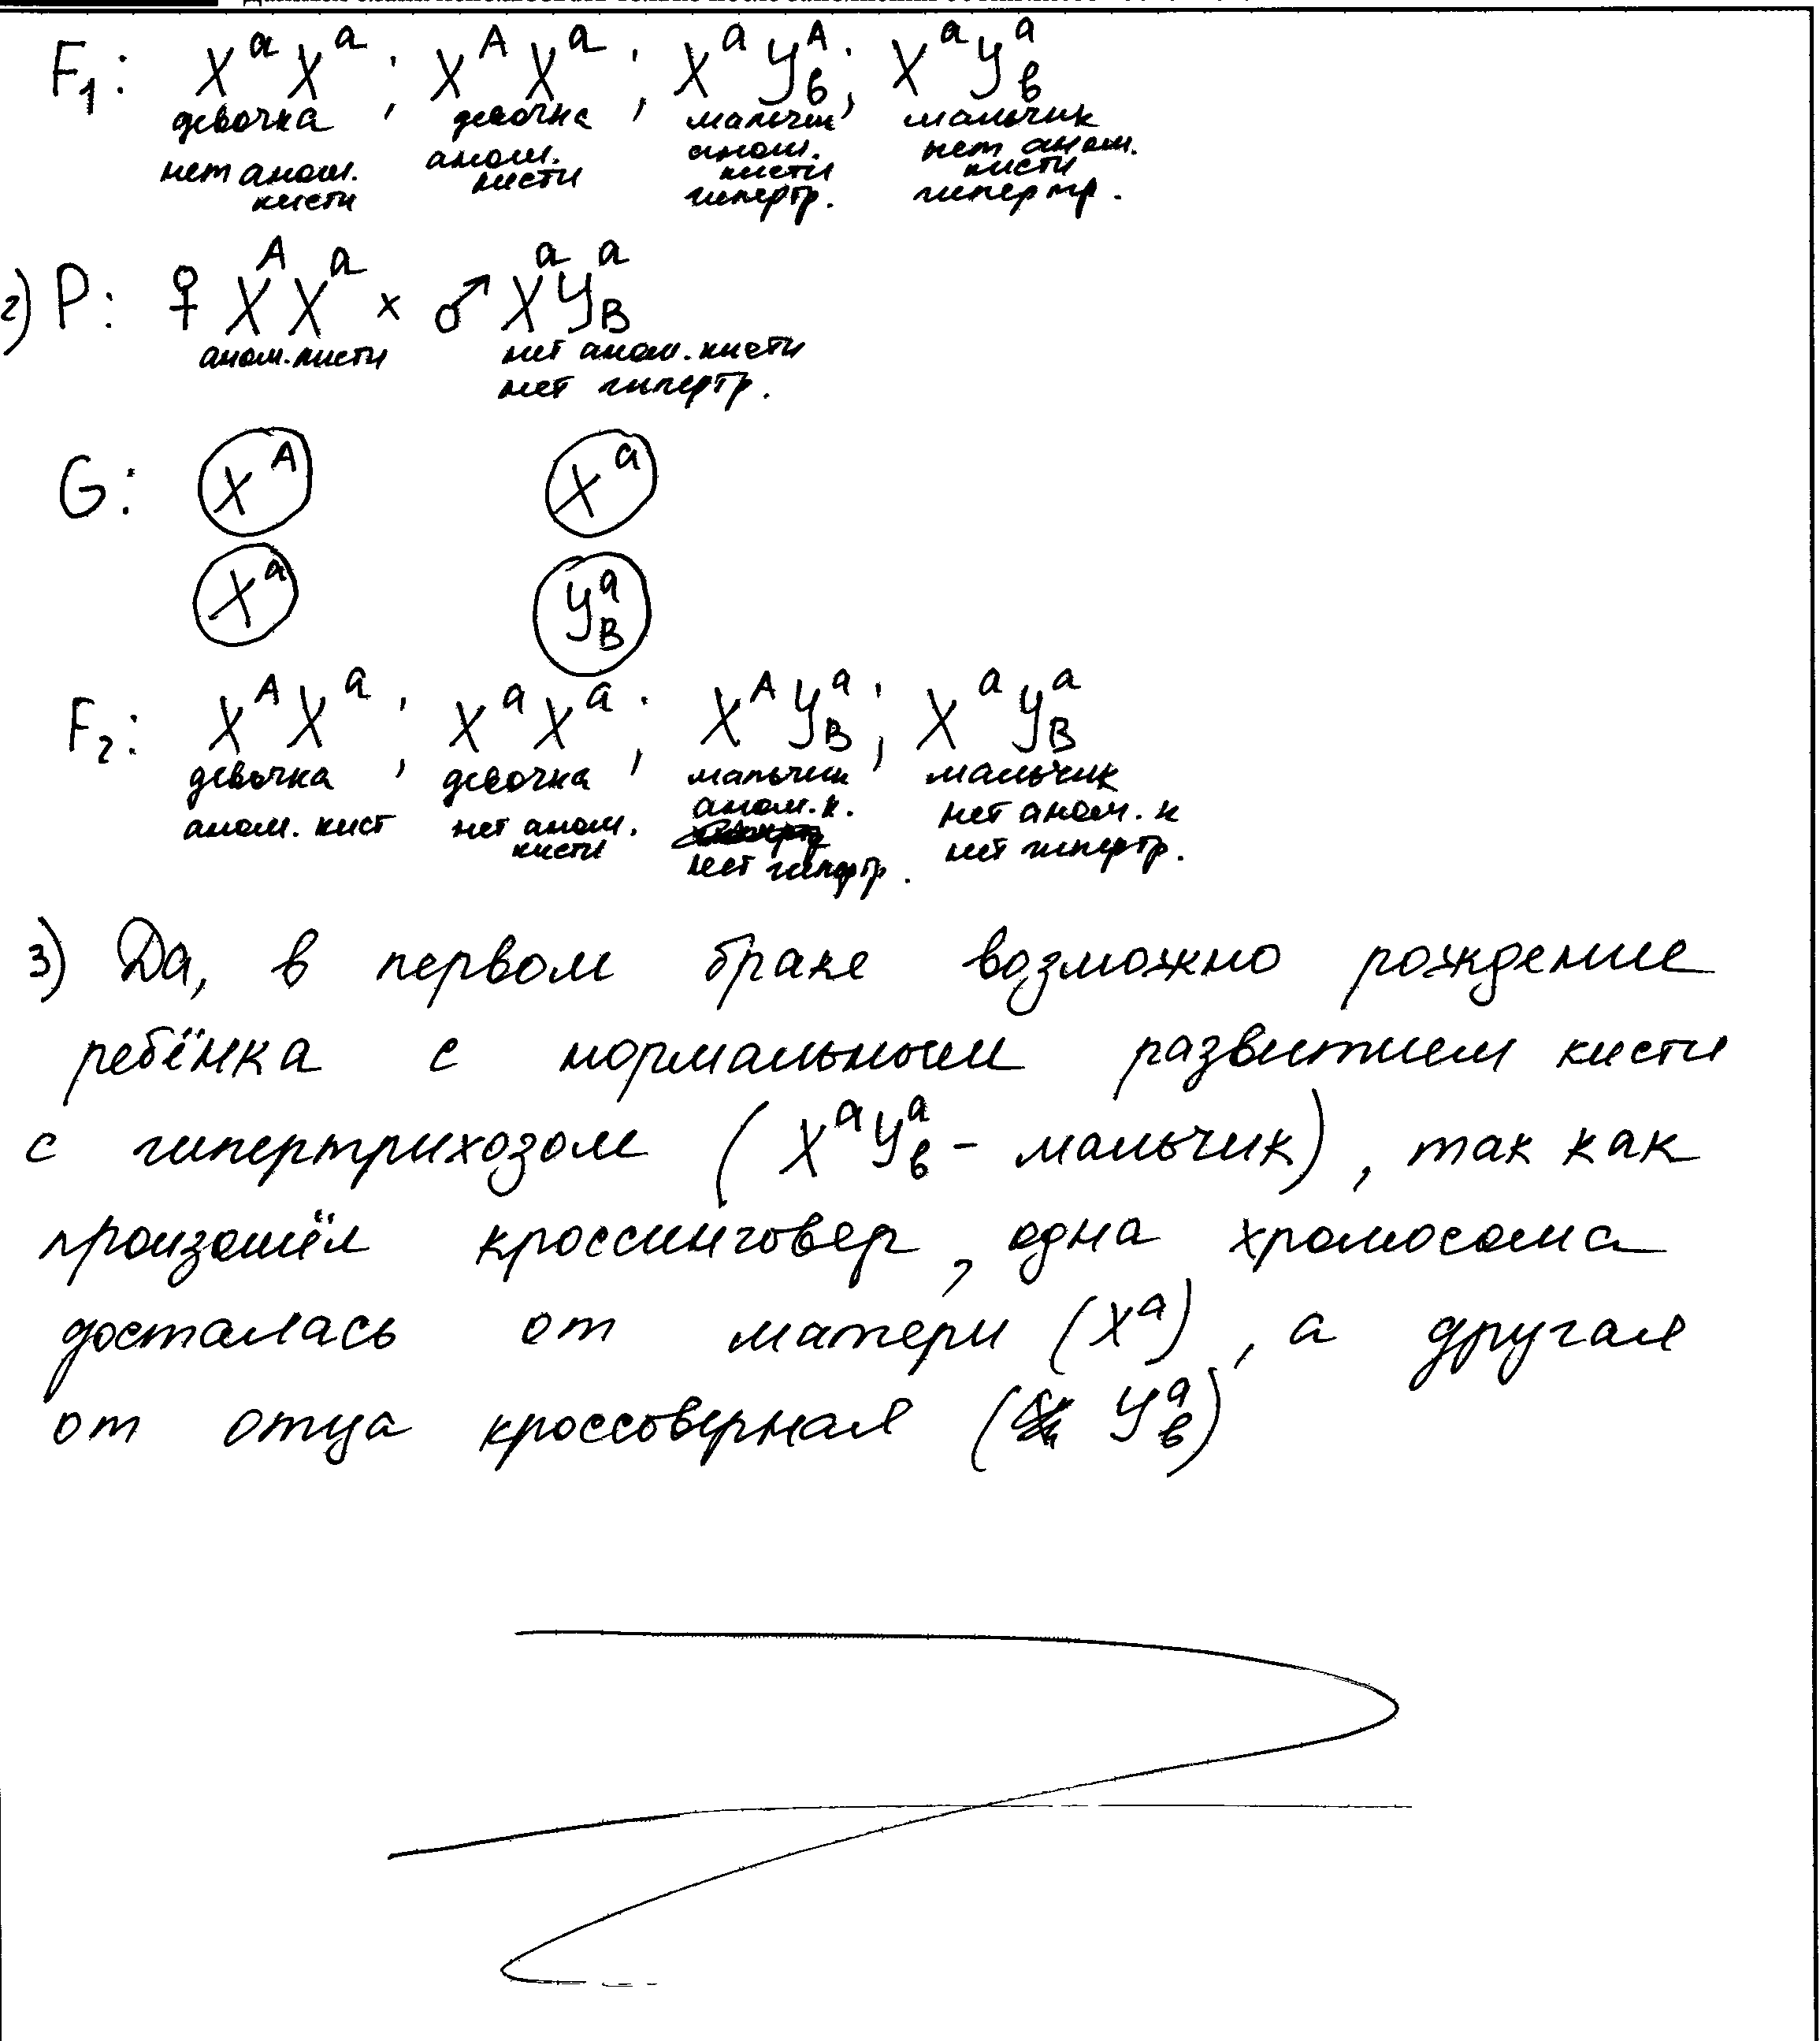 F₁: XᵃXᵃ; XᴬXᵃ; XᵃУᴬв; XᵃУᵃв
девочка девочка мальчик мальчик
нет аном. кисти аном. кисти аном. кисти гипертр. нет аном. кисти гипертр.
2) P: ♀ XᴬXᵃ × ♂ XᵃУᵃB
аном. кисти нет аном. кисти
нет гипертр.
G: Xᴬ Xᵃ
Xᵃ УᵃB
F₂: XᴬXᵃ; XᵃXᵃ; XᴬУᵃB; XᵃУᵃB
девочка девочка мальчик мальчик
аном. кист нет аном. кисти аном. к. нет гипертр. нет аном. к нет гипертр.
3) Да, в первом браке возможно рождение
ребёнка с нормальным развитием кисти
с гипертрихозом (XᵃУᵃв - мальчик), так как
произошёл кроссинговер, одна хромосома
досталась от матери (Xᵃ), а другая
от отца кроссоверная (Уᵃв)